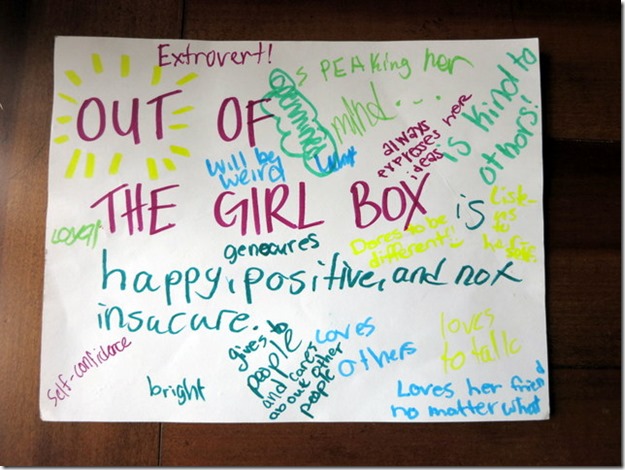 Extrovert!
OUT OF
SPEAKing her
mind...
is kind to
others!
always
expresses her
ideas
will be
weird
THE GIRL BOX is
Listenes
to
Dares to be
different!
genecures
happy, positive, and not
insucure.
gives to
people
and cares
about other
people
loves
others
loves
to talk
self-confidance
bright
Loves her friend
no matter what